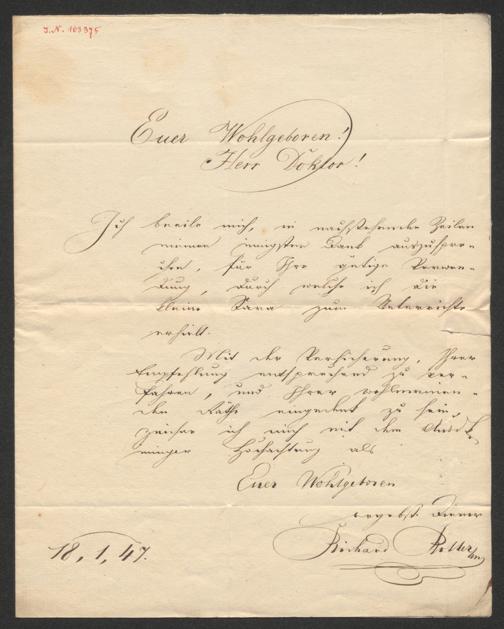 J.N. 103375
Euer Wohlgeboren!
Herr Doktor!
Ich beeile mich, in nachstehenden Zeilen
meinen innigsten Dank auszuspre-
chen, für Ihre gütige Verwen-
dung, durch welche ich die
kleine Sara zum Unterrichte
erhielt.
Mit der Versicherung, Ihrer
Empfehlung entsprechend zu ver-
fahren, und Ihrer wohlmeinen-
den Räthe eingedenk zu sein,
zeichne ich mich mit dem
inniger Hochachtung als
Euer Wohlgeboren
ergebst. Diener
Richard
18, 1, 47.